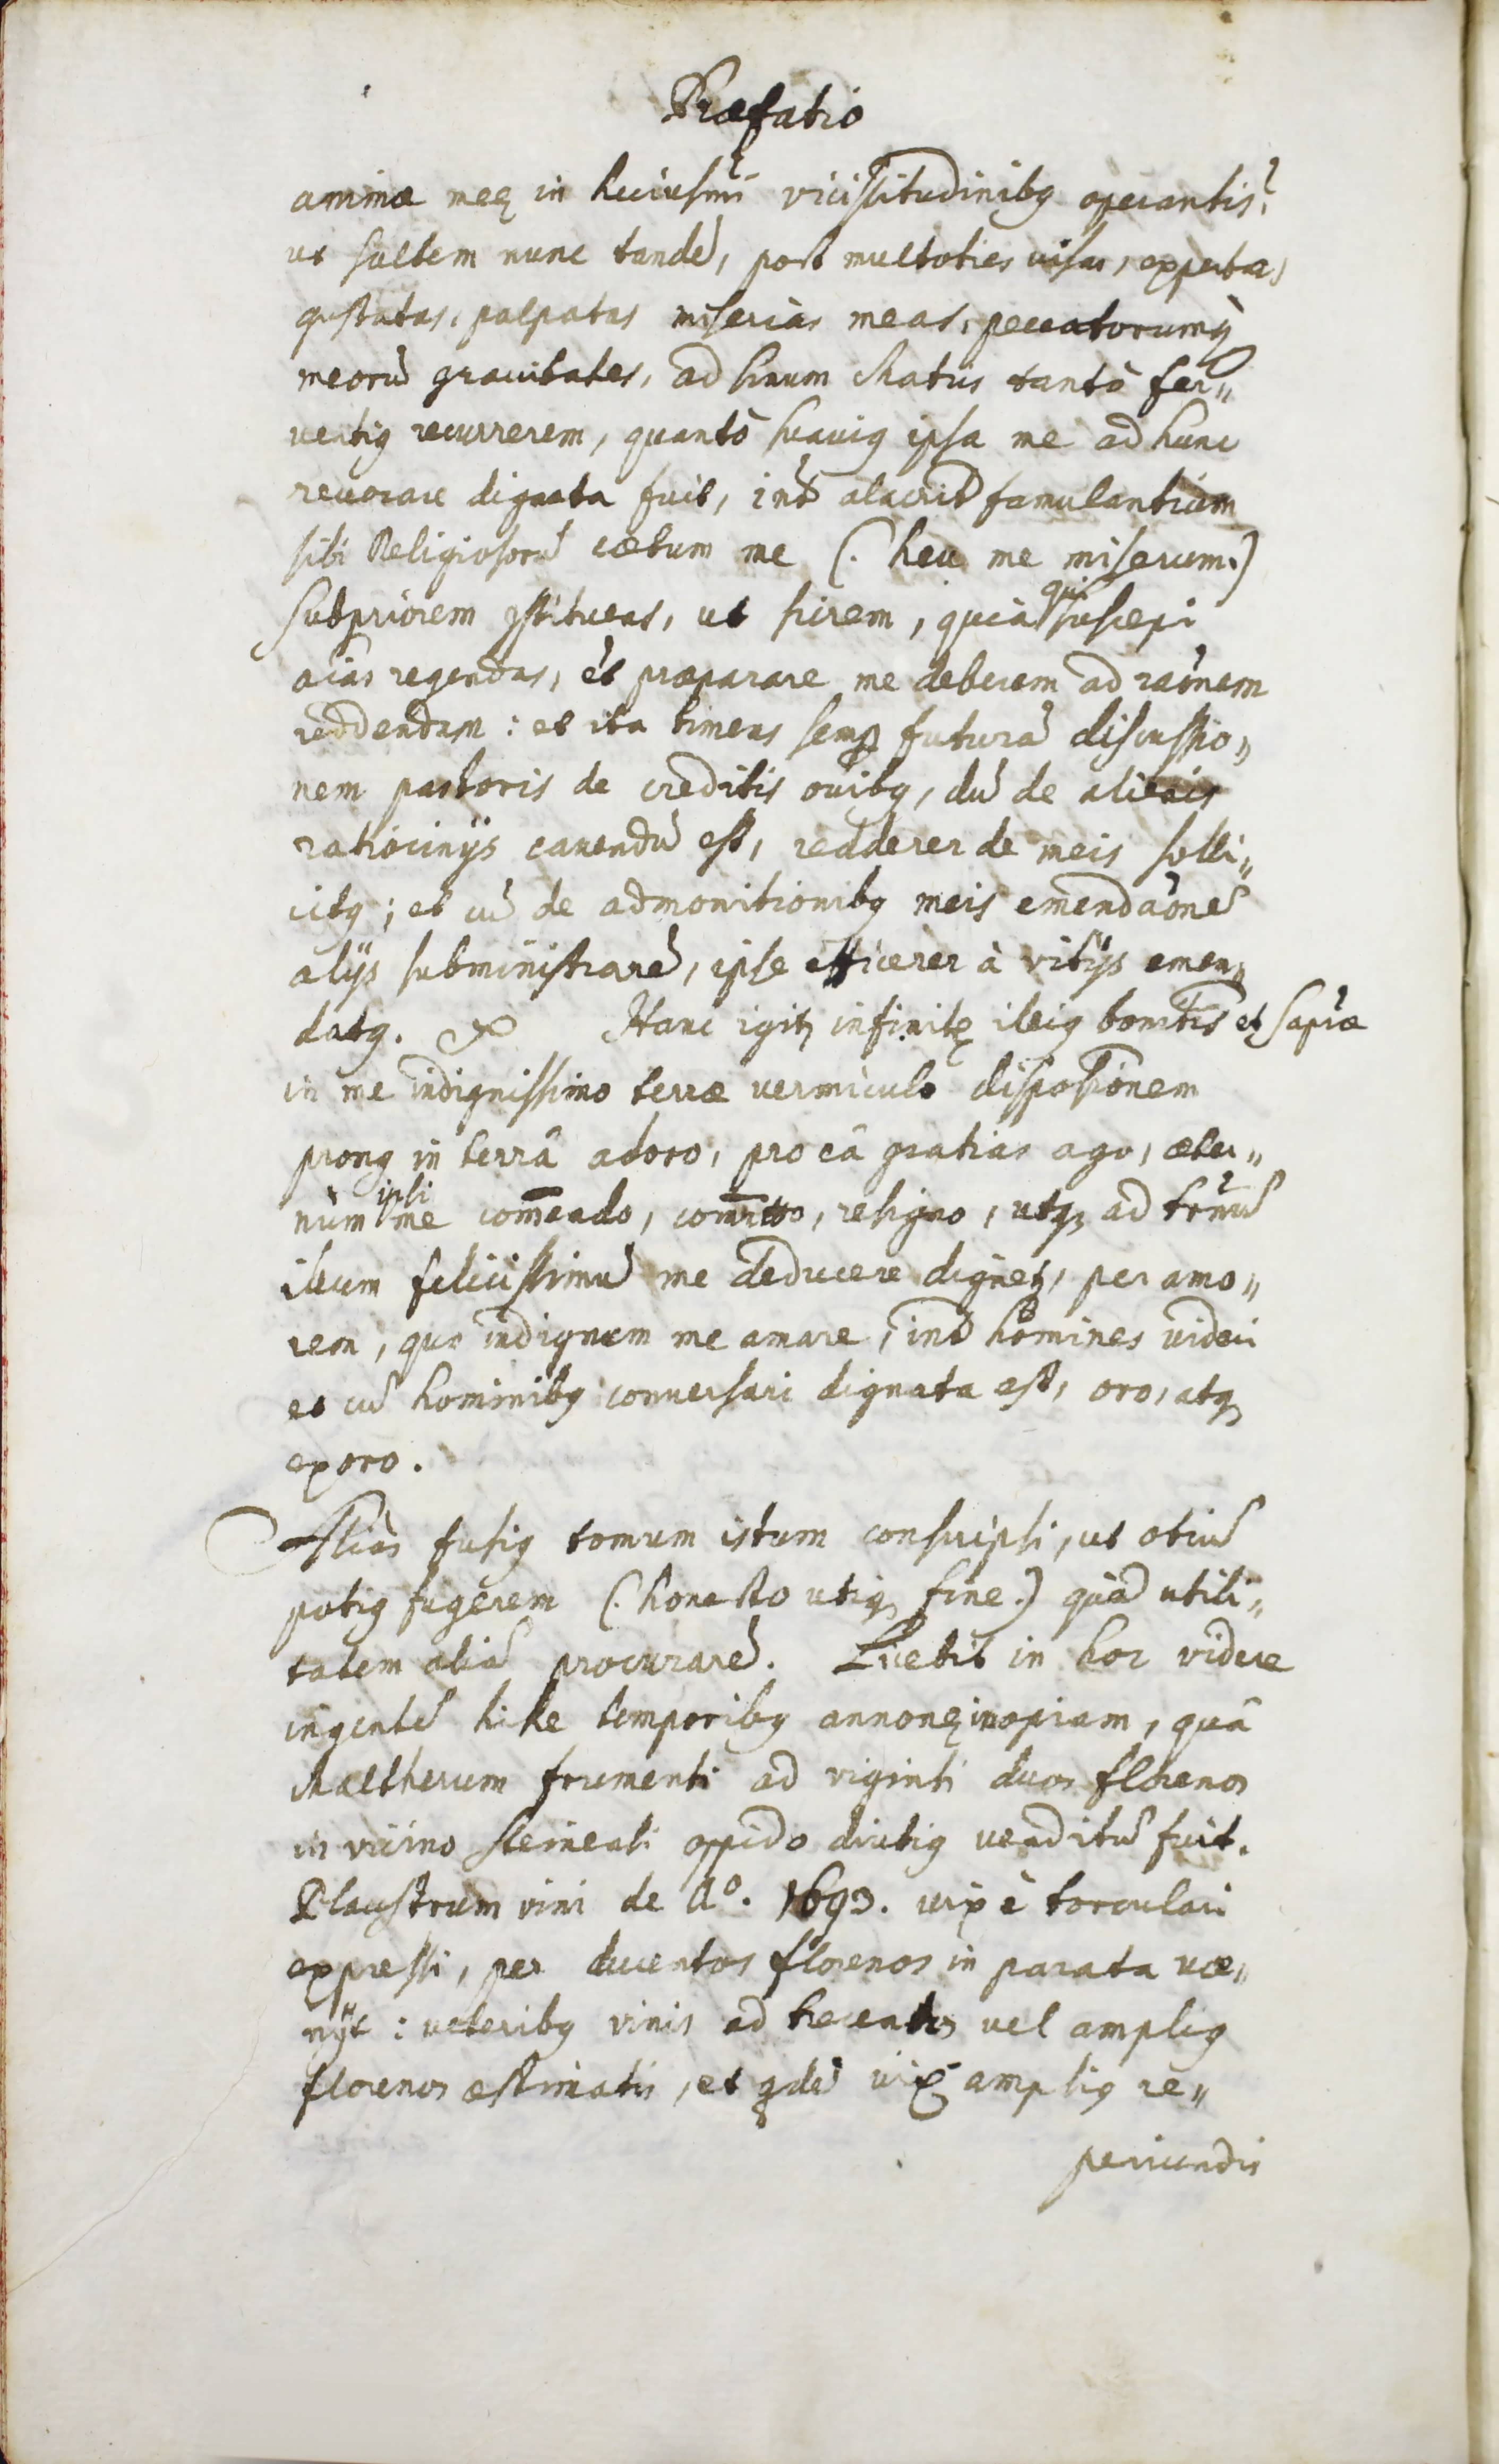 Præfatio
animæ meę in huiusmi vicissitudinibꝯ operantis?
ut saltem nunc tandẽ, post multoties visas, expertas,
gustatas, palpatas miserias meas, peccatorumq̃
meorũ grauitates, ad sinum Matris tantò fer„
uentiꝯ recurrerem, quantò suauiꝯ ipsa me ad hunc
reuocare dignata fuit, int̃ alacrit̃ famulantium
sibi Religiosorũ cœtum me (. heu me miserum.)
Subpriorem ꝯstituens, ut scirem, quia qui suscepi
aĩas regendas, et præparare me deberem ad raõnem
reddendam : et ita timens semp̱ futurã discussio„
nem pastoris de creditis ouibꝯ, dũ de alienis
ratiocinijs cauendũ est, redderer de meis solli„
citꝯ ; et cũ de admonitionibꝯ meis emendaõnẽ
alijs subministrarẽ, ipse efficerer à vitijs emen„
datꝯ. Hanc igitꝛ infinitę illiꝯ bonitatis et sap̃iæ
in me indignissimo terræ vermiculo disposiõnem
pronꝯ in terrâ adoro, pro eâ gratias ago, æter„
nùm ipsi me com̃endo, com̃itto, resigno, utqꝫ ad t̃rm̃ũ
illum felicissimũ me deducere dignetꝛ, per amo„
rem, quo indignum me amare, int̃ homines videri
et cũ hominibꝯ conuersari dignata est, oro, atqꝫ
exoro.
Aliàs fusiꝯ tomum istum conscripsi, ut otiũ
potiꝯ fugerem (. honesto utiqꝫ fine.) quàm utili„
tatem aliã procurarẽ. Licebit in hoc videre
ingentẽ hisce temporibꝯ annonę inopiam, quâ
Maltherum frumenti ad viginti duos florenos
in vicino Steineck oppido diutiꝯ venditũ fuit.
Plaustrum vini de Aº. 1693. vix è torculari
expressi, per ducentos florenos in parata væ„
nijt : veteribꝯ vinis ad trecentos vel ampliꝯ
florenos æstimatis, et qdẽ vix ampliꝯ re„
periundis